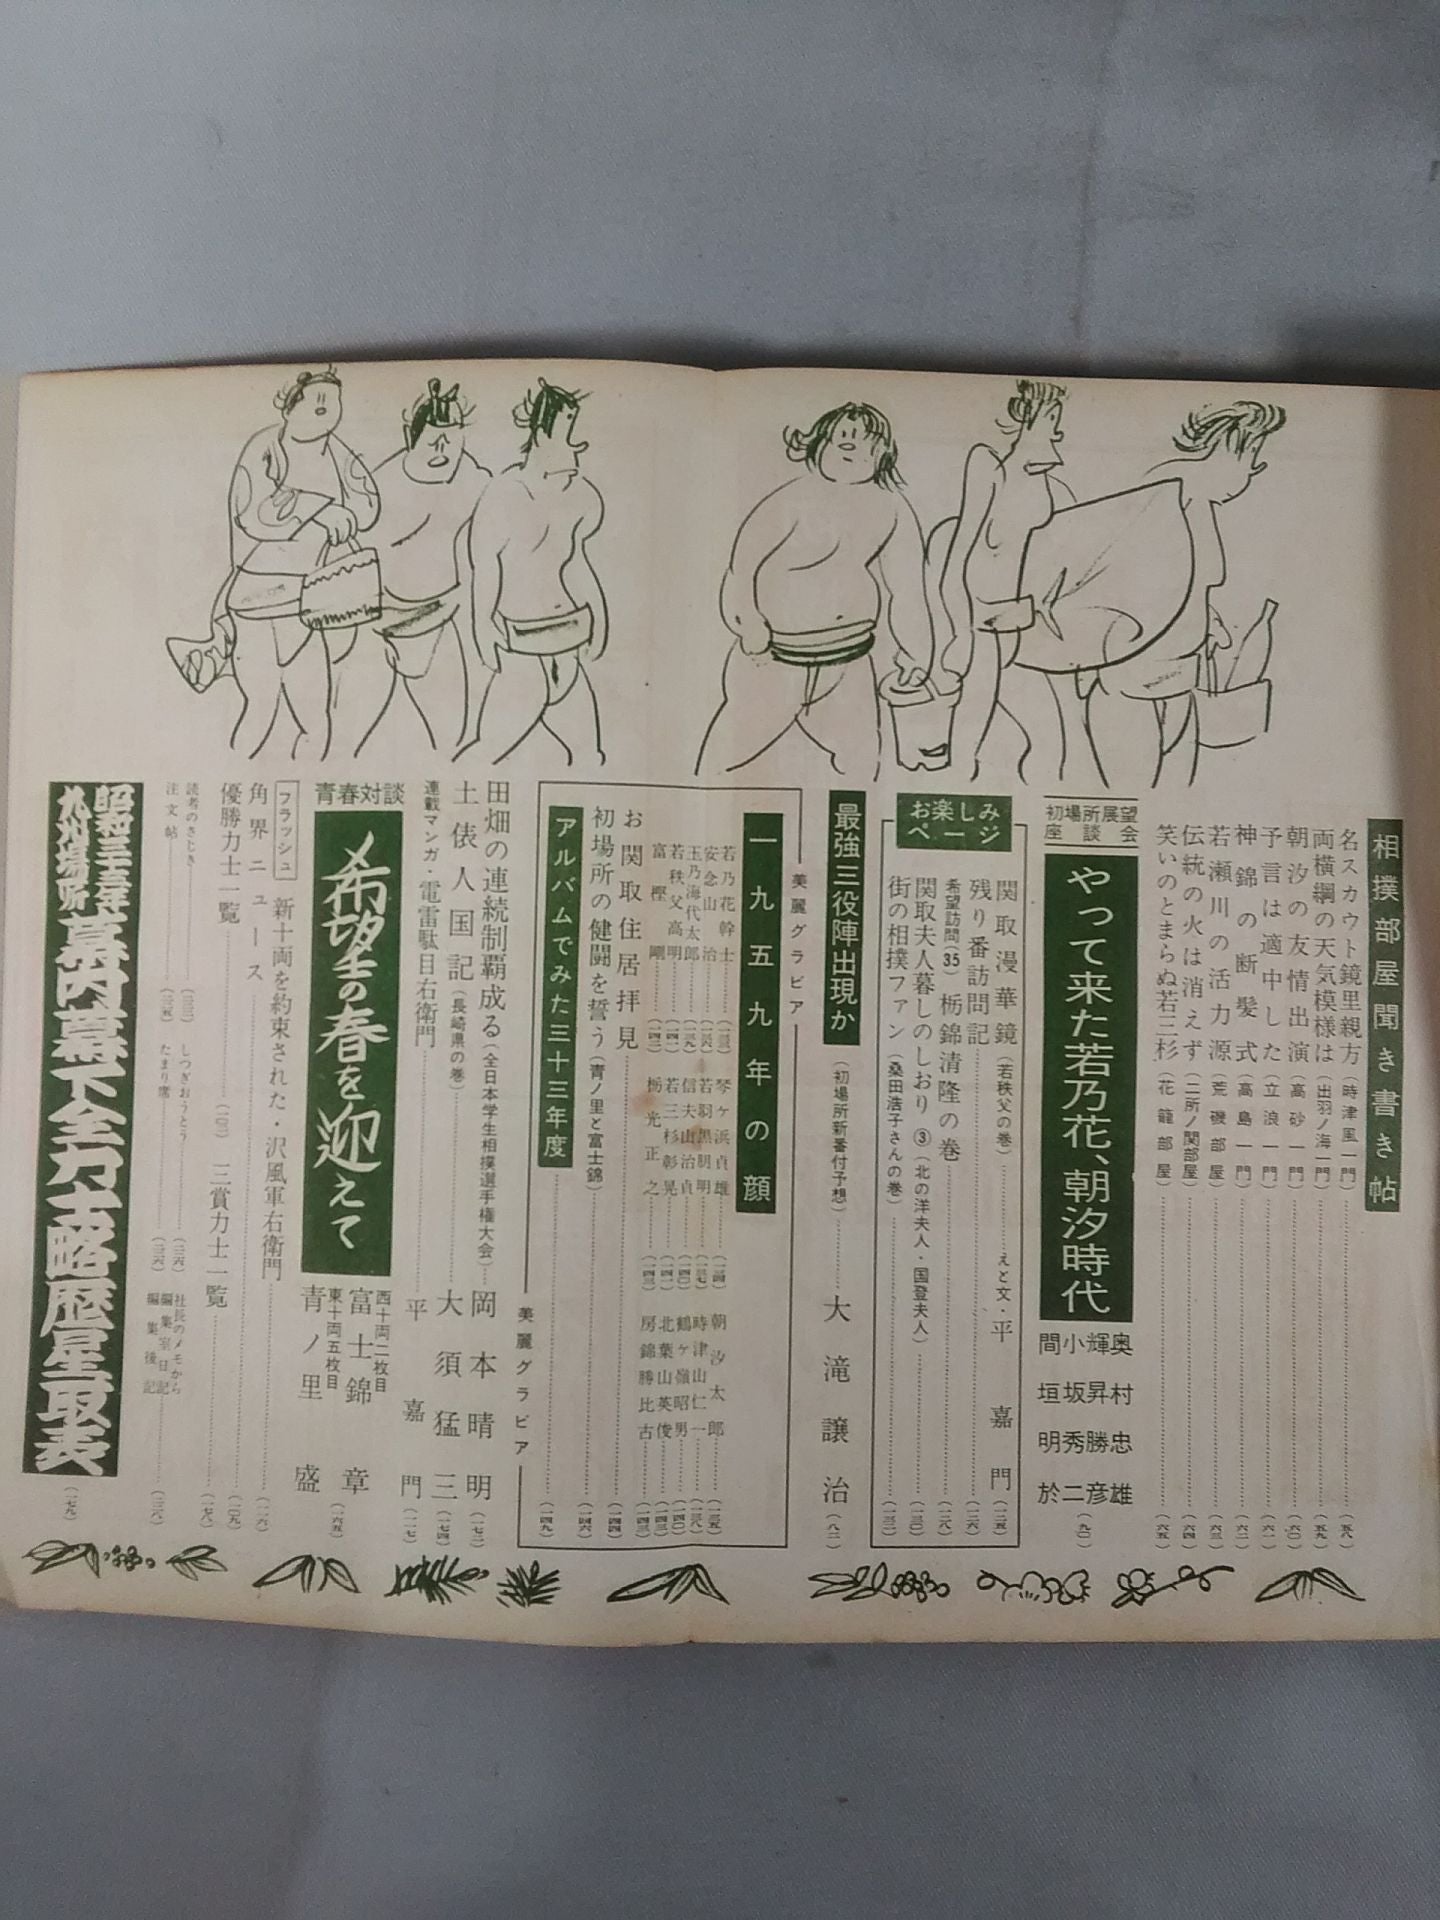 相撲部屋聞き書き帖
名スカウト鏡里親方（時津風一門）（五八）
両横綱の天気模様は（出羽ノ海一門）（五九）
朝汐の友情出演（高砂一門）（六〇）
予言は適中した（立浪一門）（六一）
神錦の断髪式（高島一門）（六二）
若瀬川の活力源（荒磯部屋）（六三）
伝統の火は消えず（二所ノ関部屋）（六四）
笑いのとまらぬ若三杉（花籠部屋）（六五）
初場所展望
座談会
やって来た若乃花、朝汐時代
奥村忠雄
輝昇勝彦
小坂秀二
間垣明於
（九〇）
お楽しみページ
関取漫華鏡（若秩父の巻）えと文・平嘉門（一二五）
残り番訪問記（一二六）
希望訪問（35）栃錦清隆の巻（一二八）
関取夫人暮しのしおり③（北の洋夫人・国登夫人）（一三〇）
街の相撲ファン（桑田浩子さんの巻）（一三二）
最強三役陣出現か（初場所新番付予想）大滝譲治（八二）
美麗グラビア
一九五九年の顔
若乃花幹士（一三三）琴ヶ浜貞雄（一三四）朝汐太郎（一三五）
安念山治（一三六）若羽黒朋明（一三七）時津山仁一（一三八）
玉乃海代太郎（一三九）信夫山治貞（一四〇）鶴ヶ嶺昭男（一四〇）
若秩父高明（一四一）若三杉彰晃（一四一）北葉山英俊（一四三）
富樫剛（一四二）栃光正之（一四三）房錦勝比古（一四三）
お関取住居拝見（一四四）
初場所の健闘を誓う（青ノ里と富士錦）（一四六）
アルバムでみた三十三年度（一四九）
美麗グラビア
田畑の連続制覇成る（全日本学生相撲選手権大会）岡本晴明（一七二）
土俵人国記（長崎県の巻）大須猛三（一七四）
連載マンガ・電雷駄目右衛門 平嘉門（一一七）
青春対談
希望の春を迎えて
西十両二枚目
富士錦章
東十両五枚目
青ノ里盛
（一六五）
フラッシュ 新十両を約束された・沢風軍右衛門（一一六）
角界ニュース（一〇九）
優勝力士一覧（一〇）三賞力士一覧（一七八）
読者のさじき しつぎおうとう 社長のメモから
注文帖 たまり席 編集室日記
編集後記
昭和三十三年九州場所 幕内幕下全力士略歴星取表（一七九）